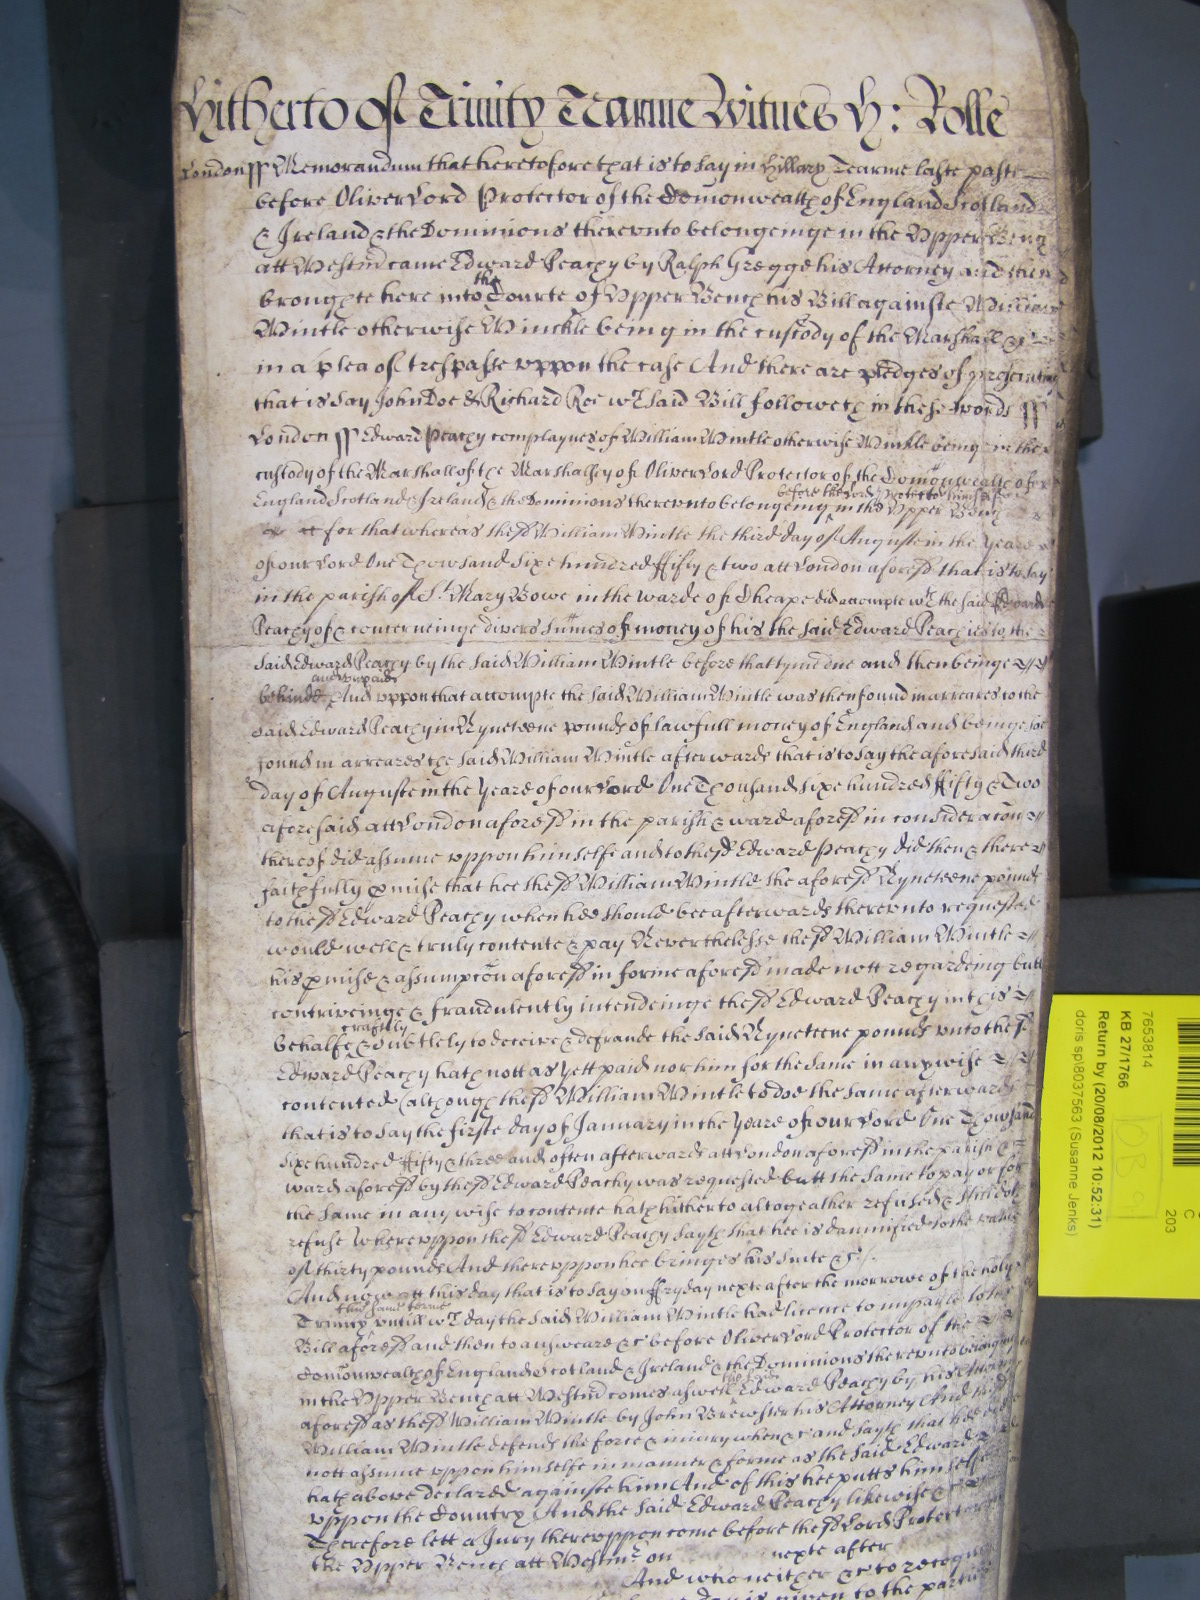 Hitherto of Trinity Tearme Witnes H: Rolle
London ss Memorandum that heretofore that is to say in Hillary Tearme laste paste
before Oliver Lord Protector of the Comonwealth of England Scotland
& Ireland & the Dominions thereunto belongeinge in the Upper Bench
att Westm̃ came Edward Peachy by Ralph Gregge his Attorney and then
broughte here into the Courte of Upper Bench his Bill againste William
Wintle otherwise Winckle being in the custody of the Marshall &c
in a plea of trespasse uppon the case And there are pledges of prosecuting
that is say John Doe & Richard Roe wch said Bill followeth in these words ss
London ss Edward Peachy complaynes of William Wintle otherwise Winkle being in the
custody of the Marshall of the Marshallsey of Oliver Lord Protector of the Comonwealth of
England Scotland & Ireland & the Dominions thereunto belongeing before the Lord Protector himselfe in the Upper Bench
for that whereas the sd William Wintle the third day of Auguste in the Yeare
of our Lord One Thowsand Sixe hundred ffifty & two att London aforesd that is to say
in the parish of St Mary Bowe in the warde of Cheape did accompte wth the said Edward
Peachy of & concerneinge divers sum̃es of money of his the said Edward Peachies to the
said Edward Peachy by the said William Wintle before that tyme due and then beinge
behinde and unpaide And uppon that accompte the said William Wintle was then found in arreares to the
said Edward Peachy in Nyneteene pounds of lawfull money of England and beinge soe
found in arreares the said William Wintle afterwards that is to say the aforesaid third
day of Auguste in the Yeare of our Lord One Thousand sixe hundred ffifty & Two
aforesaid att London aforesd in the parish & ward aforesd in consideracon
thereof did assume uppon himselfe and to the sd Edward Peachy did then & there
faithfully p̱mise that hee the sd William Wintle the aforesd Nyneteene pounds
to the sd Edward Peachy when hee should bee afterwards thereunto requested
would well & truly contente & pay Neverthelesse the sd William Wintle
his p̱mise & assumpc̃on aforesd in forme aforesd made nott regardeing butt
contriveinge & fraudulently intendeinge the sd Edward Peachy in this
behalfe craftily & subtlely to deceive & defraude the said Nyneteene pounds unto the sd
Edward Peachy hath nott as yett paid nor him for the same in anywise
contented (although the sd William Wintle to doe the same afterwards
that is to say the firste day of January in the Yeare of our Lord One Thowsand
Sixe hundred ffifty & three and often afterwards att London aforesd in the parish &
ward aforesd by the sd Edward Peachy was requested butt the same to pay or for
the same in any wise to contente hath hitherto altogeather refused & still doth
refuse Whereuppon the sd Edward Peachy sayth that hee is damnified to the value
of thirty pounds And thereuppon hee bringes his suite &c
And now att this day that is to say on ffryday nexte after the morrowe of the holy
Trinity this same terme untill wch day the said William Wintle had licence to imparle to the
Bill aforesd and then to answeare &c before Oliver Lord Protector of the
Comonwealth of England Scotland & Ireland & the Dominions thereunto belonging
in the Upper Bench att Westm̃ comes aswell the said Edward Peachy by his Attorney
aforesd as the sd William Wintle by John Brewster his Attorney And the sd
William Wintle defends the force & iniury when &c and sayth that hee did
nott assume uppon himselfe in manner & forme as the said Edward
hath above declared againste him And of this hee putts himselfe
uppon the Country And the said Edward Peachy likewise &c
Therefore lett a Jury thereuppon come before the sd Lord Protector
the Upper Bench att Westmr on nexte after
And who neither &c to recogn
day is given to the parties
7653814
KB 27/1766
Return by (20/08/2012 10:52:31)
doris spl8037563 (Susanne Jenks)
C
203